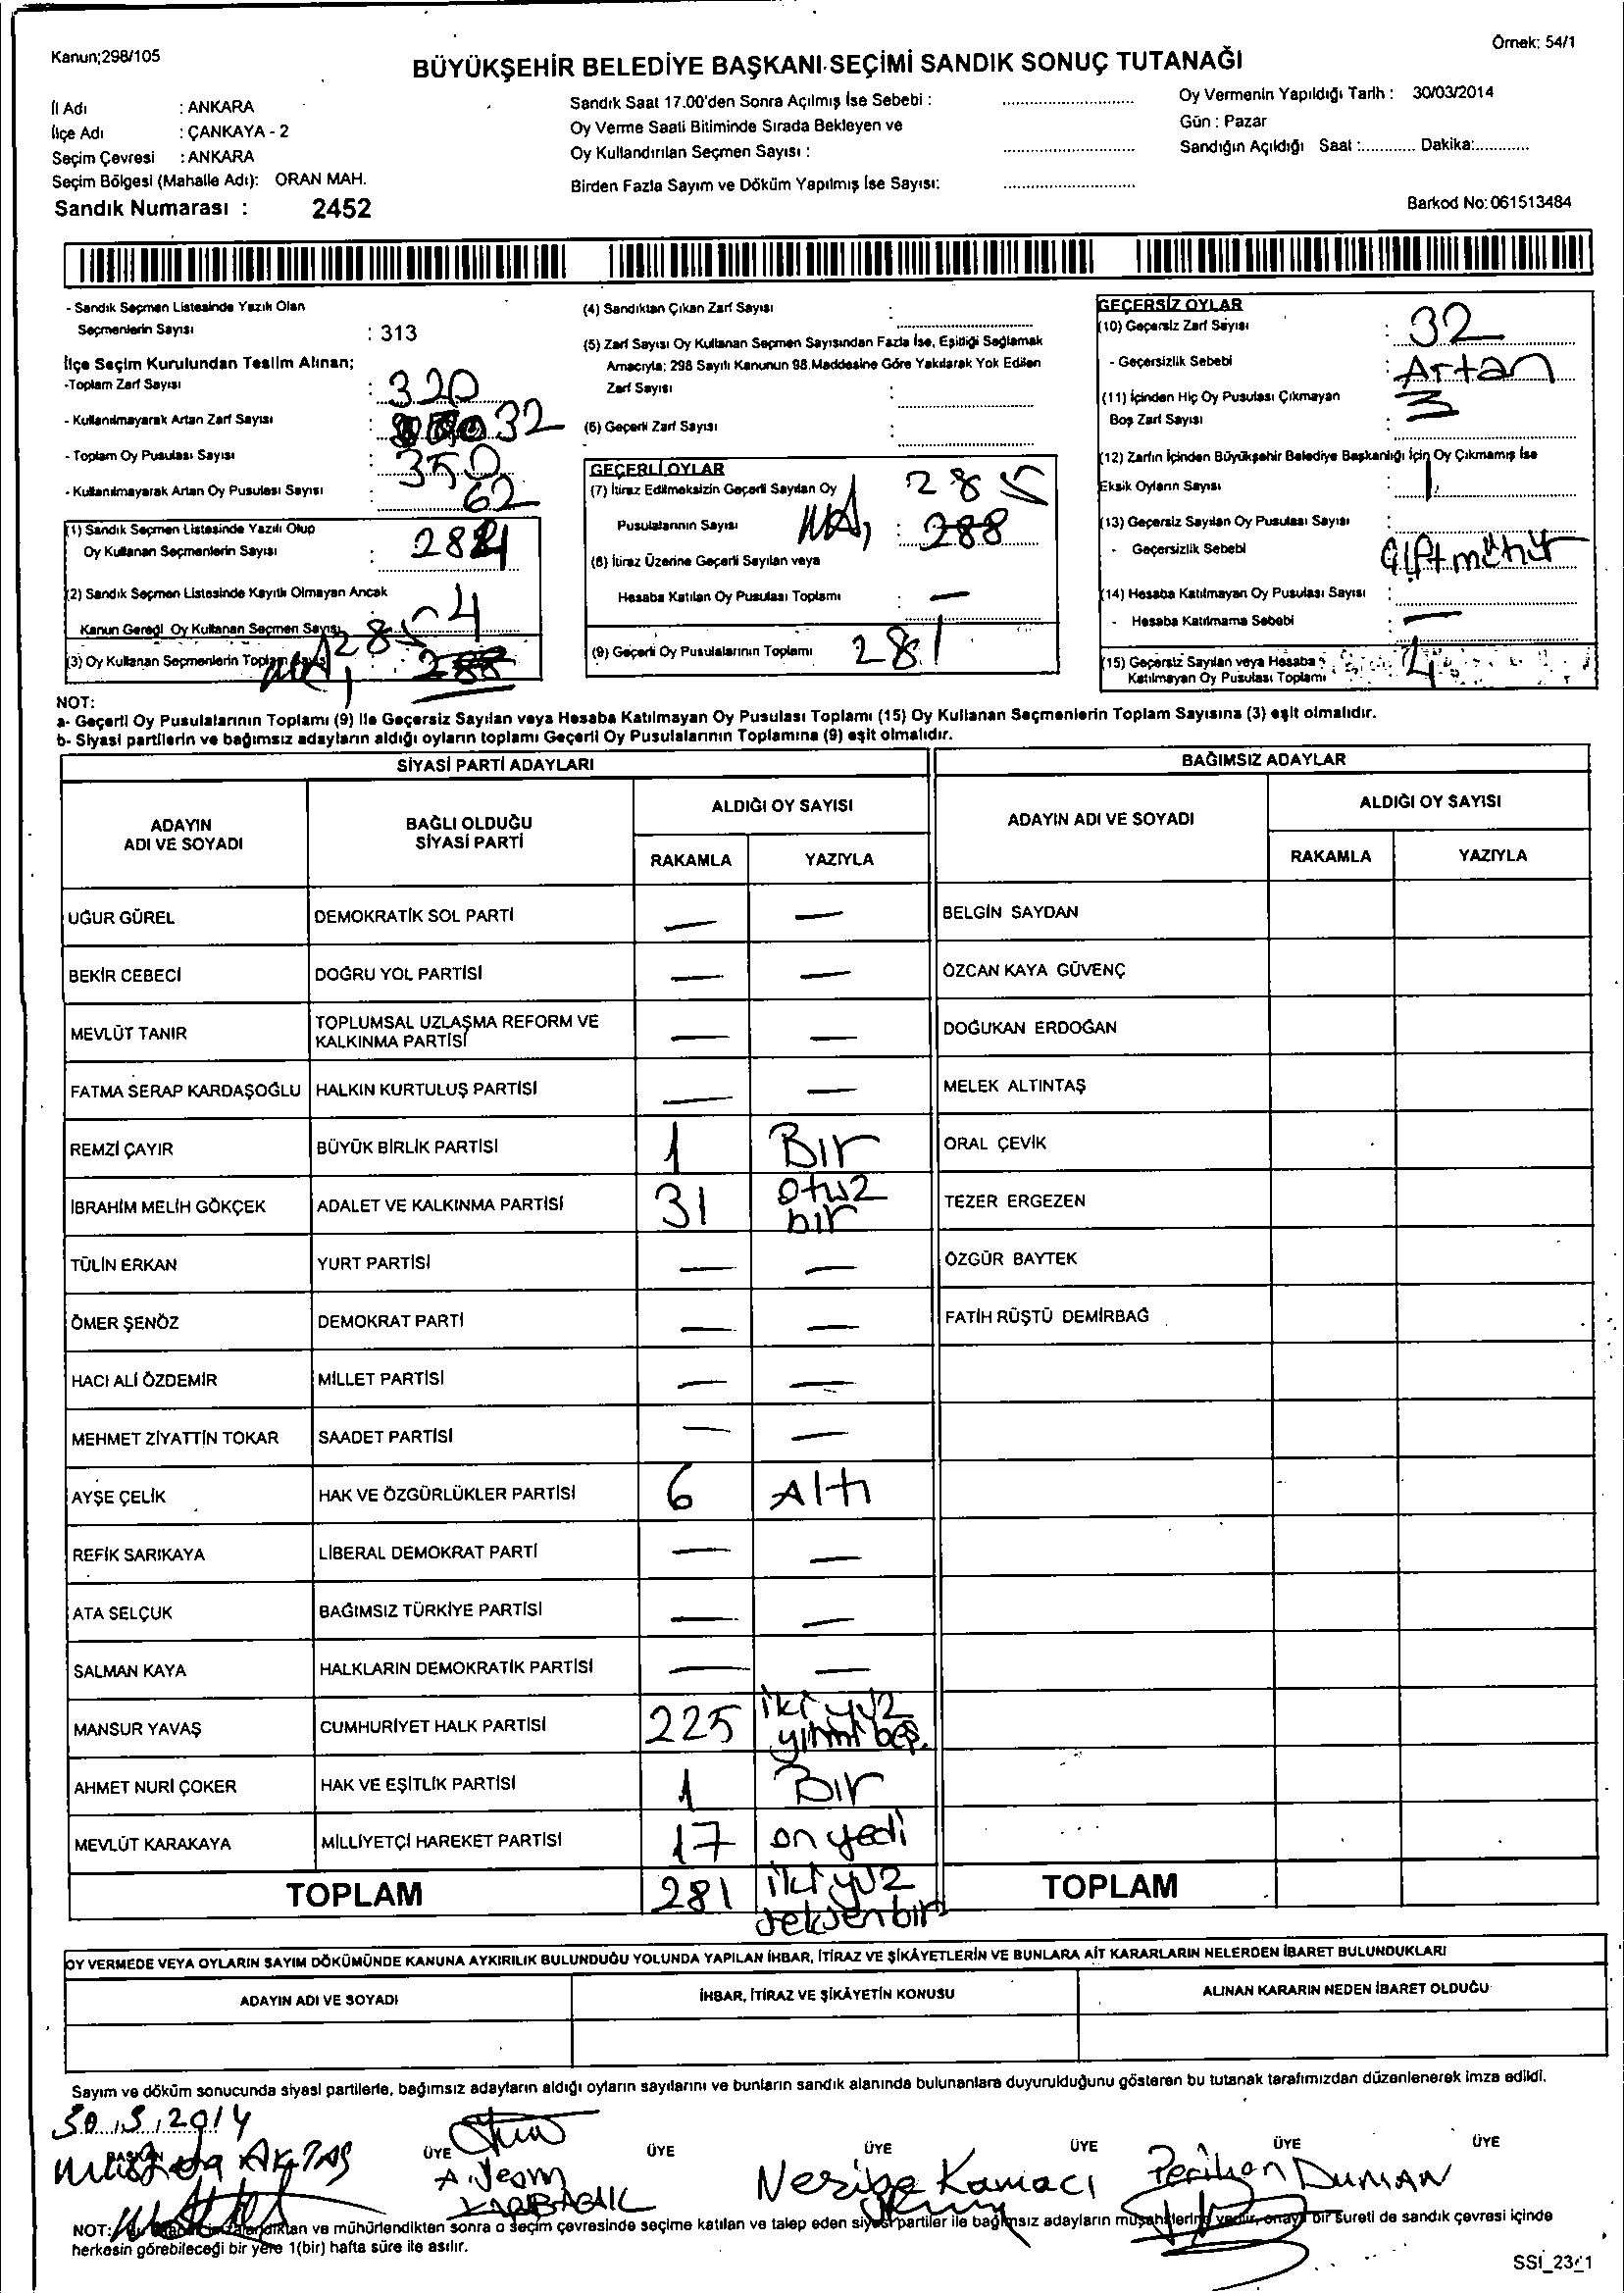 Kanun;298/105
Örnek: 54/1
BÜYÜKŞEHİR BELEDİYE BAŞKANI SEÇİMİ SANDIK SONUÇ TUTANAĞI
İl Adı : ANKARA
İlçe Adı : ÇANKAYA - 2
Seçim Çevresi : ANKARA
Seçim Bölgesi (Mahalle Adı): ORAN MAH.
Sandık Numarası : 2452
Sandık Saat 17.00'den Sonra Açılmış İse Sebebi :
Oy Verme Saati Bitiminde Sırada Bekleyen ve
Oy Kullandırılan Seçmen Sayısı :
Birden Fazla Sayım ve Döküm Yapılmış İse Sayısı:
Oy Vermenin Yapıldığı Tarih : 30/03/2014
Gün : Pazar
Sandığın Açıldığı Saat :............ Dakika:............
Barkod No: 061513484
- Sandık Seçmen Listesinde Yazılı Olan
Seçmenlerin Sayısı : 313
İlçe Seçim Kurulundan Teslim Alınan;
-Toplam Zarf Sayısı : 320
- Kullanılmayarak Artan Zarf Sayısı : 32
- Toplam Oy Pusulası Sayısı : 350
- Kullanılmayarak Artan Oy Pusulası Sayısı : 62
(1) Sandık Seçmen Listesinde Yazılı Olup
Oy Kullanan Seçmenlerin Sayısı :
(2) Sandık Seçmen Listesinde Kayıtlı Olmayan Ancak
Kanun Gereği Oy Kullanan Seçmen Sayısı 4
(3) Oy Kullanan Seçmenlerin Toplam Sayısı : 285 288
(4) Sandıktan Çıkan Zarf Sayısı :
(5) Zarf Sayısı Oy Kullanan Seçmen Sayısından Fazla İse, Eşitliği Sağlamak
Amacıyla; 298 Sayılı Kanunun 98.Maddesine Göre Yakılarak Yok Edilen
Zarf Sayısı :
(6) Geçerli Zarf Sayısı :
GEÇERLİ OYLAR
(7) İtiraz Edilmeksizin Geçerli Sayılan Oy 285
Pusulalarının Sayısı : 288
(8) İtiraz Üzerine Geçerli Sayılan veya
Hesaba Katılan Oy Pusulası Toplamı : —
(9) Geçerli Oy Pusulalarının Toplamı 281
GEÇERSİZ OYLAR
(10) Geçersiz Zarf Sayısı : 32
- Geçersizlik Sebebi : Artan
(11) İçinden Hiç Oy Pusulası Çıkmayan
Boş Zarf Sayısı : 3
(12) Zarfın İçinden Büyükşehir Belediye Başkanlığı İçin Oy Çıkmamış İse
Eksik Oyların Sayısı : 1
(13) Geçersiz Sayılan Oy Pusulası Sayısı :
- Geçersizlik Sebebi Çift mühür
(14) Hesaba Katılmayan Oy Pusulası Sayısı :
- Hesaba Katılmama Sebebi : —
(15) Geçersiz Sayılan veya Hesaba
Katılmayan Oy Pusulası Toplamı : 4
NOT:
a- Geçerli Oy Pusulalarının Toplamı (9) ile Geçersiz Sayılan veya Hesaba Katılmayan Oy Pusulası Toplamı (15) Oy Kullanan Seçmenlerin Toplam Sayısına (3) eşit olmalıdır.
b- Siyasi partilerin ve bağımsız adayların aldığı oyların toplamı Geçerli Oy Pusulalarının Toplamına (9) eşit olmalıdır.
SİYASİ PARTİ ADAYLARI BAĞIMSIZ ADAYLAR
ADAYIN ADI VE SOYADI BAĞLI OLDUĞU SİYASİ PARTİ ALDIĞI OY SAYISI ADAYIN ADI VE SOYADI ALDIĞI OY SAYISI
RAKAMLA YAZIYLA RAKAMLA YAZIYLA
UĞUR GÜREL DEMOKRATİK SOL PARTİ — — BELGİN SAYDAN
BEKİR CEBECİ DOĞRU YOL PARTİSİ — — ÖZCAN KAYA GÜVENÇ
MEVLÜT TANIR TOPLUMSAL UZLAŞMA REFORM VE KALKINMA PARTİSİ — — DOĞUKAN ERDOĞAN
FATMA SERAP KARDAŞOĞLU HALKIN KURTULUŞ PARTİSİ — — MELEK ALTINTAŞ
REMZİ ÇAYIR BÜYÜK BİRLİK PARTİSİ 1 Bir ORAL ÇEVİK
İBRAHİM MELİH GÖKÇEK ADALET VE KALKINMA PARTİSİ 31 otuz bir TEZER ERGEZEN
TÜLİN ERKAN YURT PARTİSİ — — ÖZGÜR BAYTEK
ÖMER ŞENÖZ DEMOKRAT PARTİ — — FATİH RÜŞTÜ DEMİRBAĞ
HACI ALİ ÖZDEMİR MİLLET PARTİSİ — —
MEHMET ZİYATTİN TOKAR SAADET PARTİSİ — —
AYŞE ÇELİK HAK VE ÖZGÜRLÜKLER PARTİSİ 6 Altı
REFİK SARIKAYA LİBERAL DEMOKRAT PARTİ — —
ATA SELÇUK BAĞIMSIZ TÜRKİYE PARTİSİ — —
SALMAN KAYA HALKLARIN DEMOKRATİK PARTİSİ — —
MANSUR YAVAŞ CUMHURİYET HALK PARTİSİ 225 iki yüz yirmi beş.
AHMET NURİ ÇOKER HAK VE EŞİTLİK PARTİSİ 1 Bir
MEVLÜT KARAKAYA MİLLİYETÇİ HAREKET PARTİSİ 17 on yedi
TOPLAM 281 iki yüz seksen bir TOPLAM
OY VERMEDE VEYA OYLARIN SAYIM DÖKÜMÜNDE KANUNA AYKIRILIK BULUNDUĞU YOLUNDA YAPILAN İHBAR, İTİRAZ VE ŞİKÂYETLERİN VE BUNLARA AİT KARARLARIN NELERDEN İBARET BULUNDUKLARI
ADAYIN ADI VE SOYADI İHBAR, İTİRAZ VE ŞİKÂYETİN KONUSU ALINAN KARARIN NEDEN İBARET OLDUĞU
Sayım ve döküm sonucunda siyasi partilerle, bağımsız adayların aldığı oyların sayılarını ve bunların sandık alanında bulunanlara duyurulduğunu gösteren bu tutanak tarafımızdan düzenlenerek imza edildi.
30.3.2014
ÜYE ÜYE ÜYE ÜYE ÜYE ÜYE
Mustafa AKTAŞ Neziha Kamacı Perihan DUMAN
NOT: ve mühürlendikten sonra o seçim çevresinde seçime katılan ve talep eden siyasi partiler ile bağımsız adayların müşahitlerine bir sureti de sandık çevresi içinde
herkesin görebileceği bir yere 1(bir) hafta süre ile asılır.
SSI_23_1